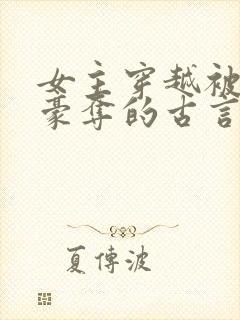 女主穿越被
豪奪的古言
夏傳波